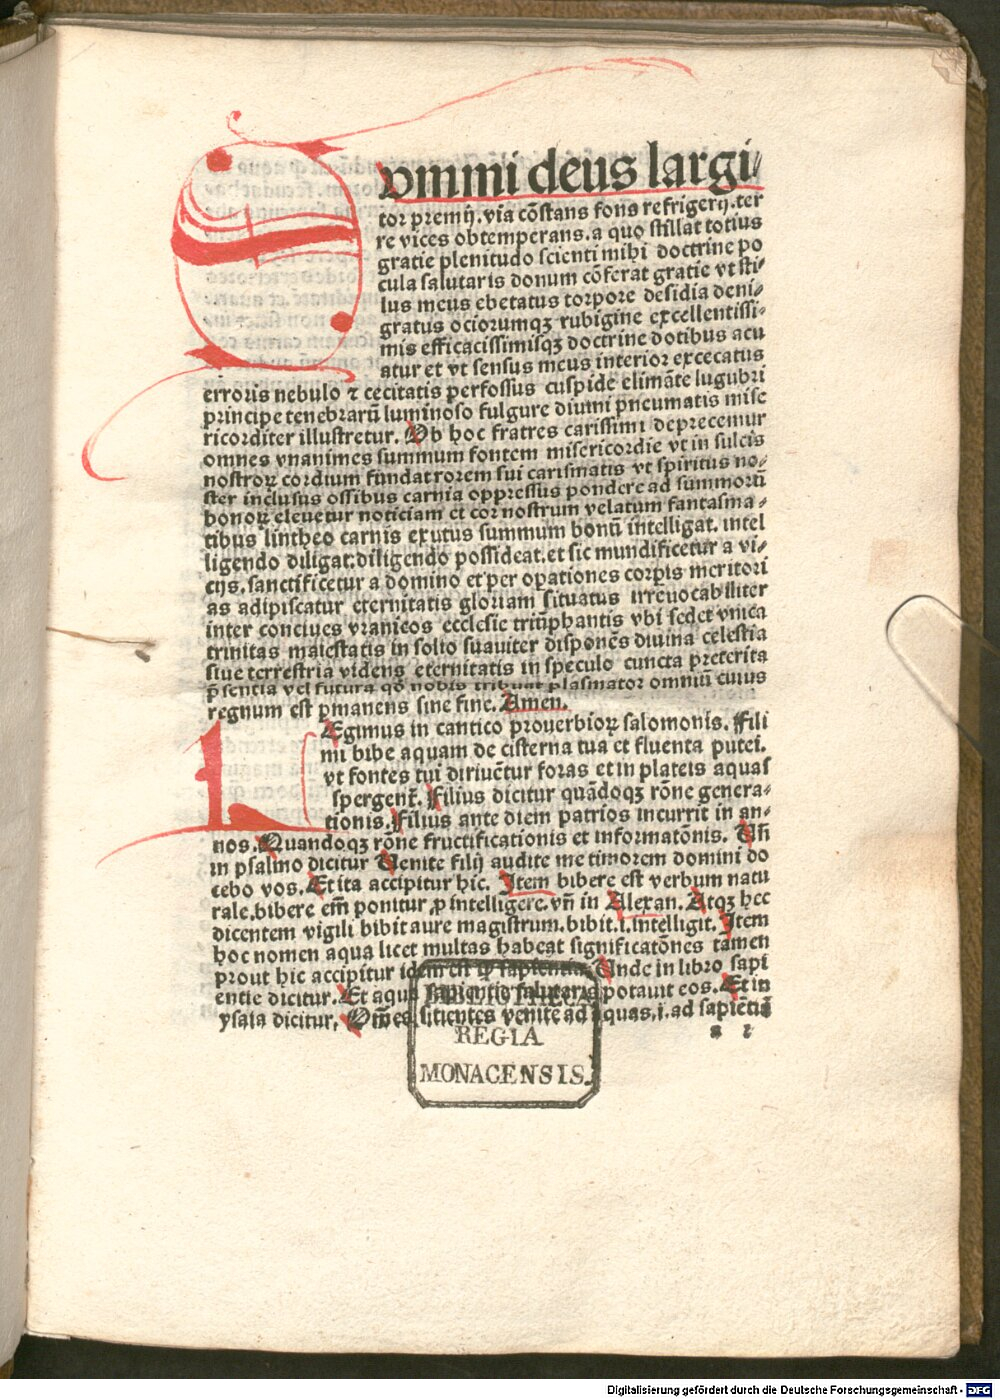 Summi deus largi⸗
tor premij. via cōstans fons refrigerij. ter
re vices obtemperans. a quo stillat totius
gratie plenitudo scienti mihi doctrine po
cula salutaris donum cōferat gratie vt sti⸗
lus meus ebetatus torpore desidia deni⸗
gratus ociorumqꝫ rubigine excellentissi⸗
mis efficacissimisqꝫ doctrine dotibus acu
atur et vt sensus meus interior excecatus
erroris nebulo ⁊ cecitatis perfossus cuspide elimāte lugubri
principe tenebrarū luminoso fulgure diuini pneumatis mise
ricorditer illustretur. Ob hoc fratres carissimi deprecemur
omnes vnanimes summum fontem misericordie vt in sulcis
nostroꝝ cordium fundat rorem sui carismatis vt spiritus no⸗
ster inclusus ossibus carnia oppressus pondere ad summorū
bonoꝝ eleuetur noticiam et cor nostrum velatum fantasma⸗
tibus lintheo carnis exutus summum bonū intelligat. intel
ligendo diligat. diligendo possideat. et sic mundificetur a vi⸗
cijs. sanctificetur a domino et per oꝑationes corꝑis meritori
as adipiscatur eternitatis gloriam situatus irreuocabiliter
inter conciues vranicos ecclesie triūphantis vbi sedet vnica
trinitas maiestatis in solio suauiter disponēs diuina celestia
siue terrestria videns eternitatis in speculo cuncta preterita
p̄sentia vel futura qd̄ nobis tribuat plasmator omniū cuius
regnum est ꝑmanens sine fine. Amen.
LEgimus in cantico prouerbioꝝ salomonis. Fili
mi bibe aquam de cisterna tua et fluenta putei.
vt fontes tui diriuētur foras et in plateis aquas
spergent̄. Filius dicitur quādoqꝫ rōne genera⸗
tionis. Filius ante diem patrios incurrit in an⸗
nos. Quandoqꝫ rōne fructificationis et informatōnis. Vn̄
in psalmo dicitur Uenite filij audite me timorem domini do
cebo vos. Et ita accipitur hic. Item bibere est verbum natu
rale. bibere em̄ ponitur ꝓ intelligere. vn̄ in Alexan. Atqꝫ hec
dicentem vigili bibit aure magistrum. bibit. i. intelligit. Item
hoc nomen aqua licet multas habeat significatōnes tamen
prout hic accipitur idem est qꝫ sapientia. Unde in libro sapi
entie dicitur. Et aqua sapientie salutaris potauit eos. Et in
ysaia dicitur. Om̄es sitientes venite ad aquas. i. ad sapiētiā
a 2
BIBLIOTHECA
REGIA
MONACENSIS.
Digitalisierung gefördert durch die Deutsche Forschungsgemeinschaft - DFG